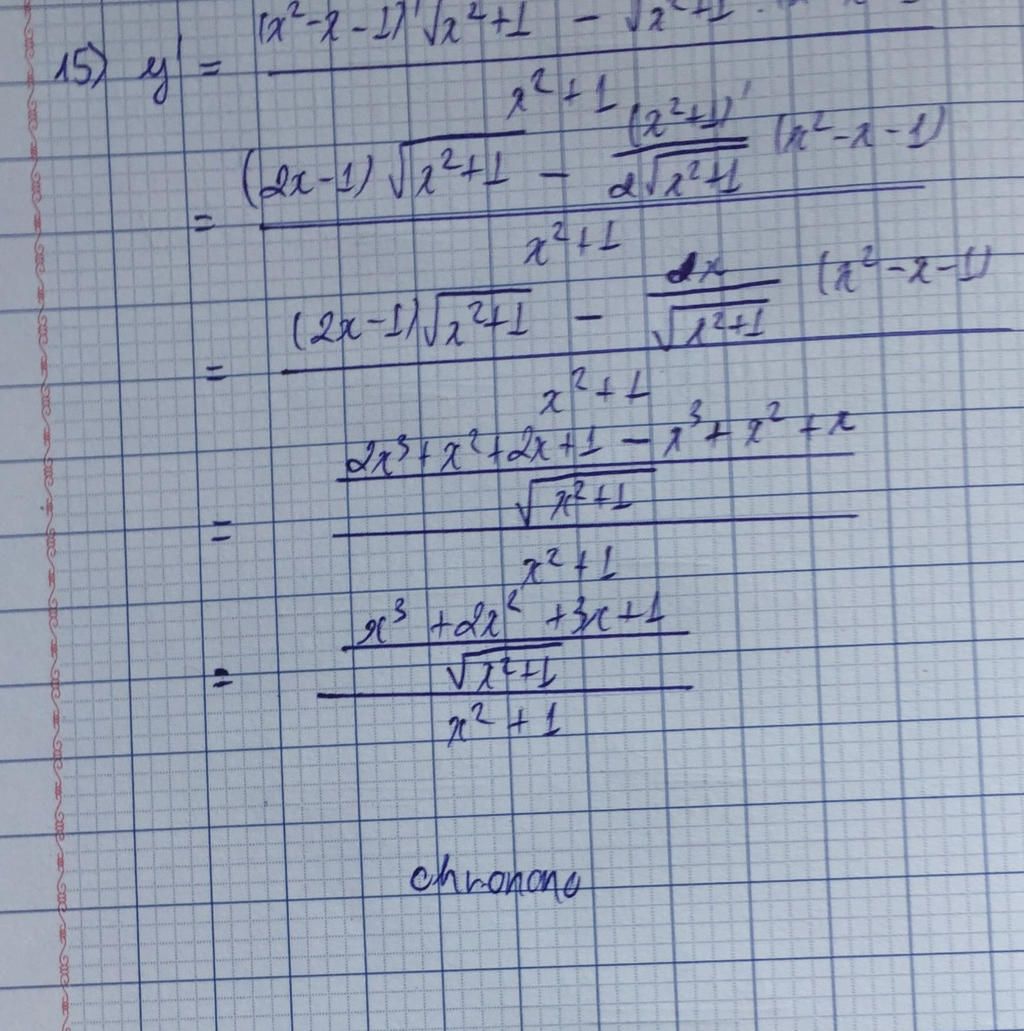 15) y' = ((x²-x-1)' √(x²+1) - √(x²+1)
x²+1
= ((2x-1) √(x²+1) - (x²+1)' / (2√(x²+1)) (x²-x-1)) / (x²+1)
= ((2x-1) √(x²+1) - 2x / √(x²+1) (x²-x-1)) / (x²+1)
= ((2x³+x²+2x+1-x³+x²+x) / √(x²+1)) / (x²+1)
= ((x³+2x²+3x+1) / √(x²+1)) / (x²+1)
chronono